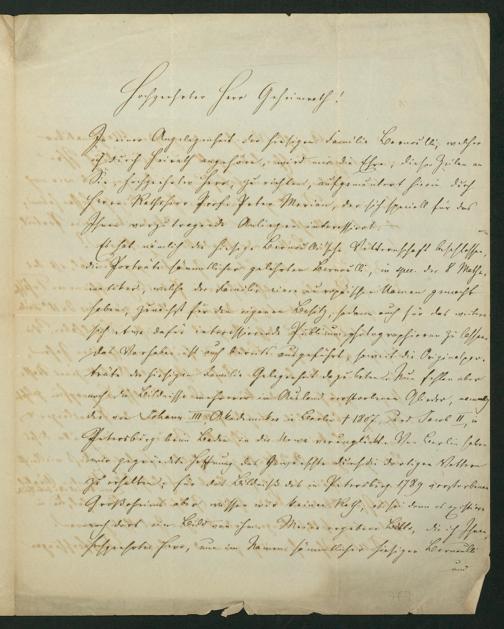 Hochgeehrter Herr Geheimrath!
In einer Angelegenheit der hiesigen Familie Bernoulli, welcher
ich durch Heirath angehöre, wird mir die Ehre, diese Zeilen an
Sie, hochgeehrter Herr, zu richten, aufgemuntert hierin durch
Herrn Rathsherr Prof. Peter Merian, der sich speziell für das
Ihnen vorzutragende Anliegen interessirt.
Es hat nämlich die hiesige Bernoullische Vetterschaft beschlossen,
die Porträte sämmtlicher gelehrten Bernoulli, in spec. der 8 Mathe-
matiker, welche der Familie einen europäischen Namen gemacht
haben, zunächst für den eigenen Besitz, sodann auch für das weitere
sich etwa dafür interessirende Publicum photographieren zu lassen.
Das Vorhaben ist auch bereits ausgeführt, soweit die Originalpor-
träte der hiesigen Familie Gelegenheit dazu boten. Nun fehlen aber
noch die Bildnisse mehrerer im Ausland verstorbener Glieder, namentlich
die von Johann III, Akademiker in Berlin † 1807, und Jacob II, in
Petersburg beim Baden in der Newa verunglückt. Von Berlin haben
wir gegründete Hoffnung das Gewünschte durch die dortigen Vettern
zu erhalten; für das Bildniß des in Petersburg 1789 verstorbenen
Großoheims aber wüssten wir keinen Rath, es sei denn es existire
noch dort ein Bild von ihm. Meine ergebene Bitte, die ich Ihnen,
hochgeehrter Herr, nun im Namen sämmtlicher hiesiger Bernoulli